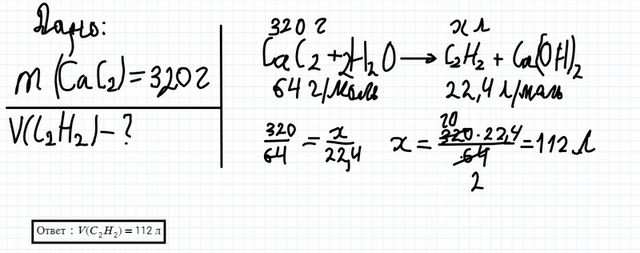 Дано:
m(CaC₂)=320 г
V(C₂H₂) – ?
320 г x л
CaC₂ + 2H₂O → C₂H₂ + Ca(OH)₂
64 г/моль 22,4 л/моль
320/64 = x/22,4 x = 320·22,4/64 = 112 л
20
2
Ответ : V(C₂H₂) = 112 л